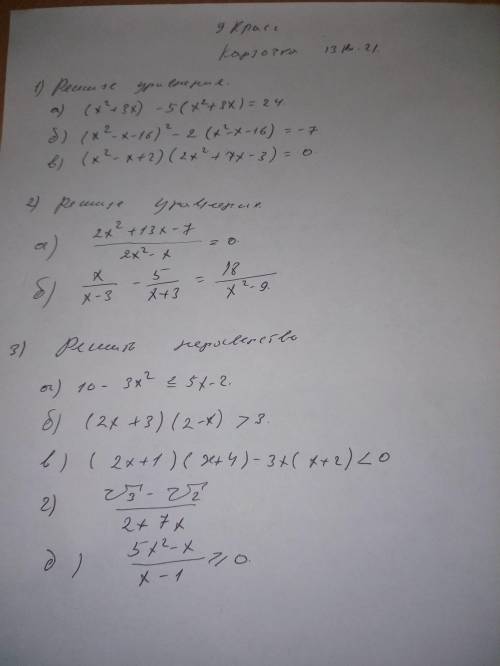 9 Класс
Карточка 13
1) Решите уравнения.
а) (x²+3x) - 5(x²+3x) = 24
б) (x²-x-16)² - 2(x²-x-16) = -7
в) (x²-x+2)(2x²+7x-3) = 0
2) Решите уравнения
а) (2x²+13x-7)/(2x²-x) = 0.
б) x/(x-3) - 5/(x+3) = 18/(x²-9)
3) Решить неравенство
а) 10 - 3x² ≤ 5x-2.
б) (2x+3)(2-x) > 3.
в) (2x+1)(x+4) - 3x(x+2) < 0
г) (√3 - √2)/(2x 7x)
д) (5x²-x)/(x-1) ≥ 0.